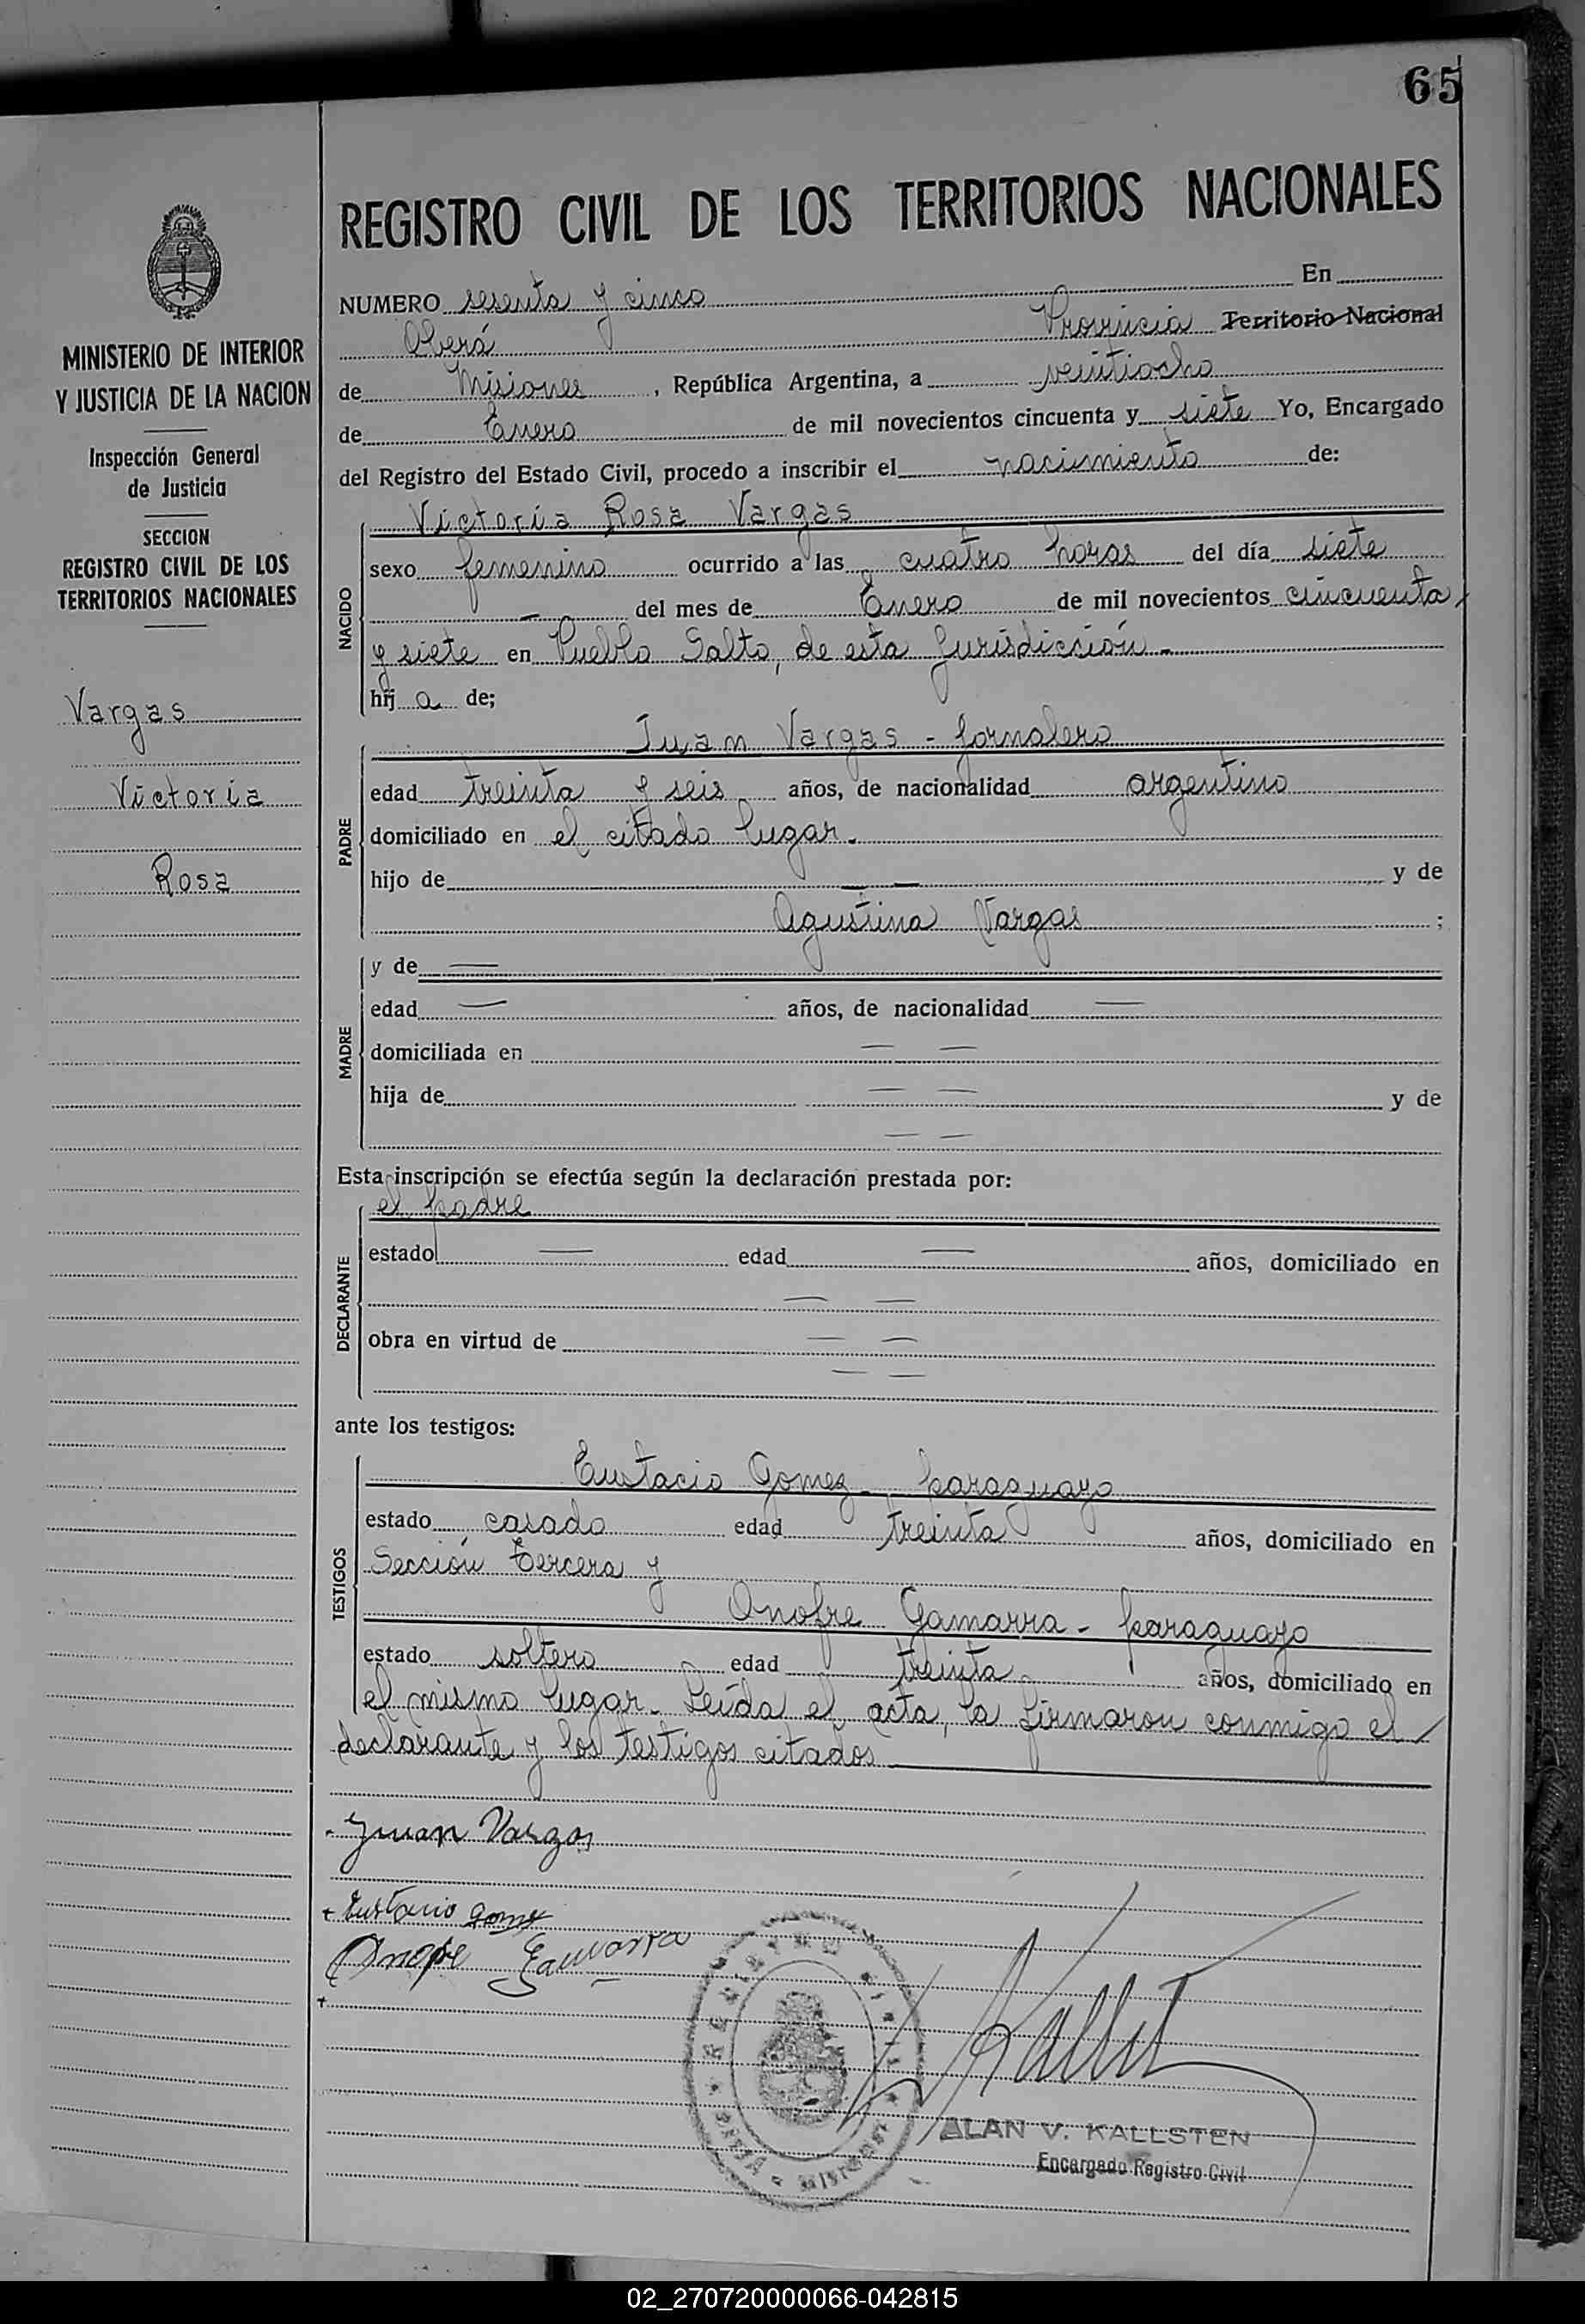 65
REGISTRO CIVIL DE LOS TERRITORIOS NACIONALES
MINISTERIO DE INTERIOR
Y JUSTICIA DE LA NACION
Inspección General
de Justicia
SECCION
REGISTRO CIVIL DE LOS
TERRITORIOS NACIONALES
Vargas
Victoria
Rosa
NUMERO sesenta y cinco En
Oberá Provincia Territorio Nacional
de Misiones, República Argentina, a veintiocho
de Enero de mil novecientos cincuenta y siete Yo, Encargado
del Registro del Estado Civil, procedo a inscribir el nacimiento de:
NACIDO
Victoria Rosa Vargas
sexo femenino ocurrido a las cuatro horas del día siete
— del mes de Enero de mil novecientos cincuenta
y siete en Pueblo Salto, de esta Jurisdicción.-
hij a de;
PADRE
Juan Vargas - Jornalero
edad treinta y seis años, de nacionalidad argentino
domiciliado en el citado lugar.
hijo de — — y de
Agustina Vargas ;
MADRE
y de —
edad — años, de nacionalidad —
domiciliada en — —
hija de — — y de
— —
Esta inscripción se efectúa según la declaración prestada por:
DECLARANTE
el padre
estado — edad — años, domiciliado en
— —
obra en virtud de — —
— —
ante los testigos:
TESTIGOS
Eustacio Gomez - paraguayo
estado casado edad treinta años, domiciliado en
Sección tercera y
Onofre Gamarra - paraguayo
estado soltero edad treinta años, domiciliado en
el mismo lugar. Leída el acta, la firmaron conmigo el
declarante y los testigos citados
Juan Vargas
Eustacio Gomez
Onofre Gamarra
REGISTRO CIVIL
OBERA MISIONES
Kallsten
ALAN V. KALLSTEN
Encargado Registro Civil
02_270720000066-042815